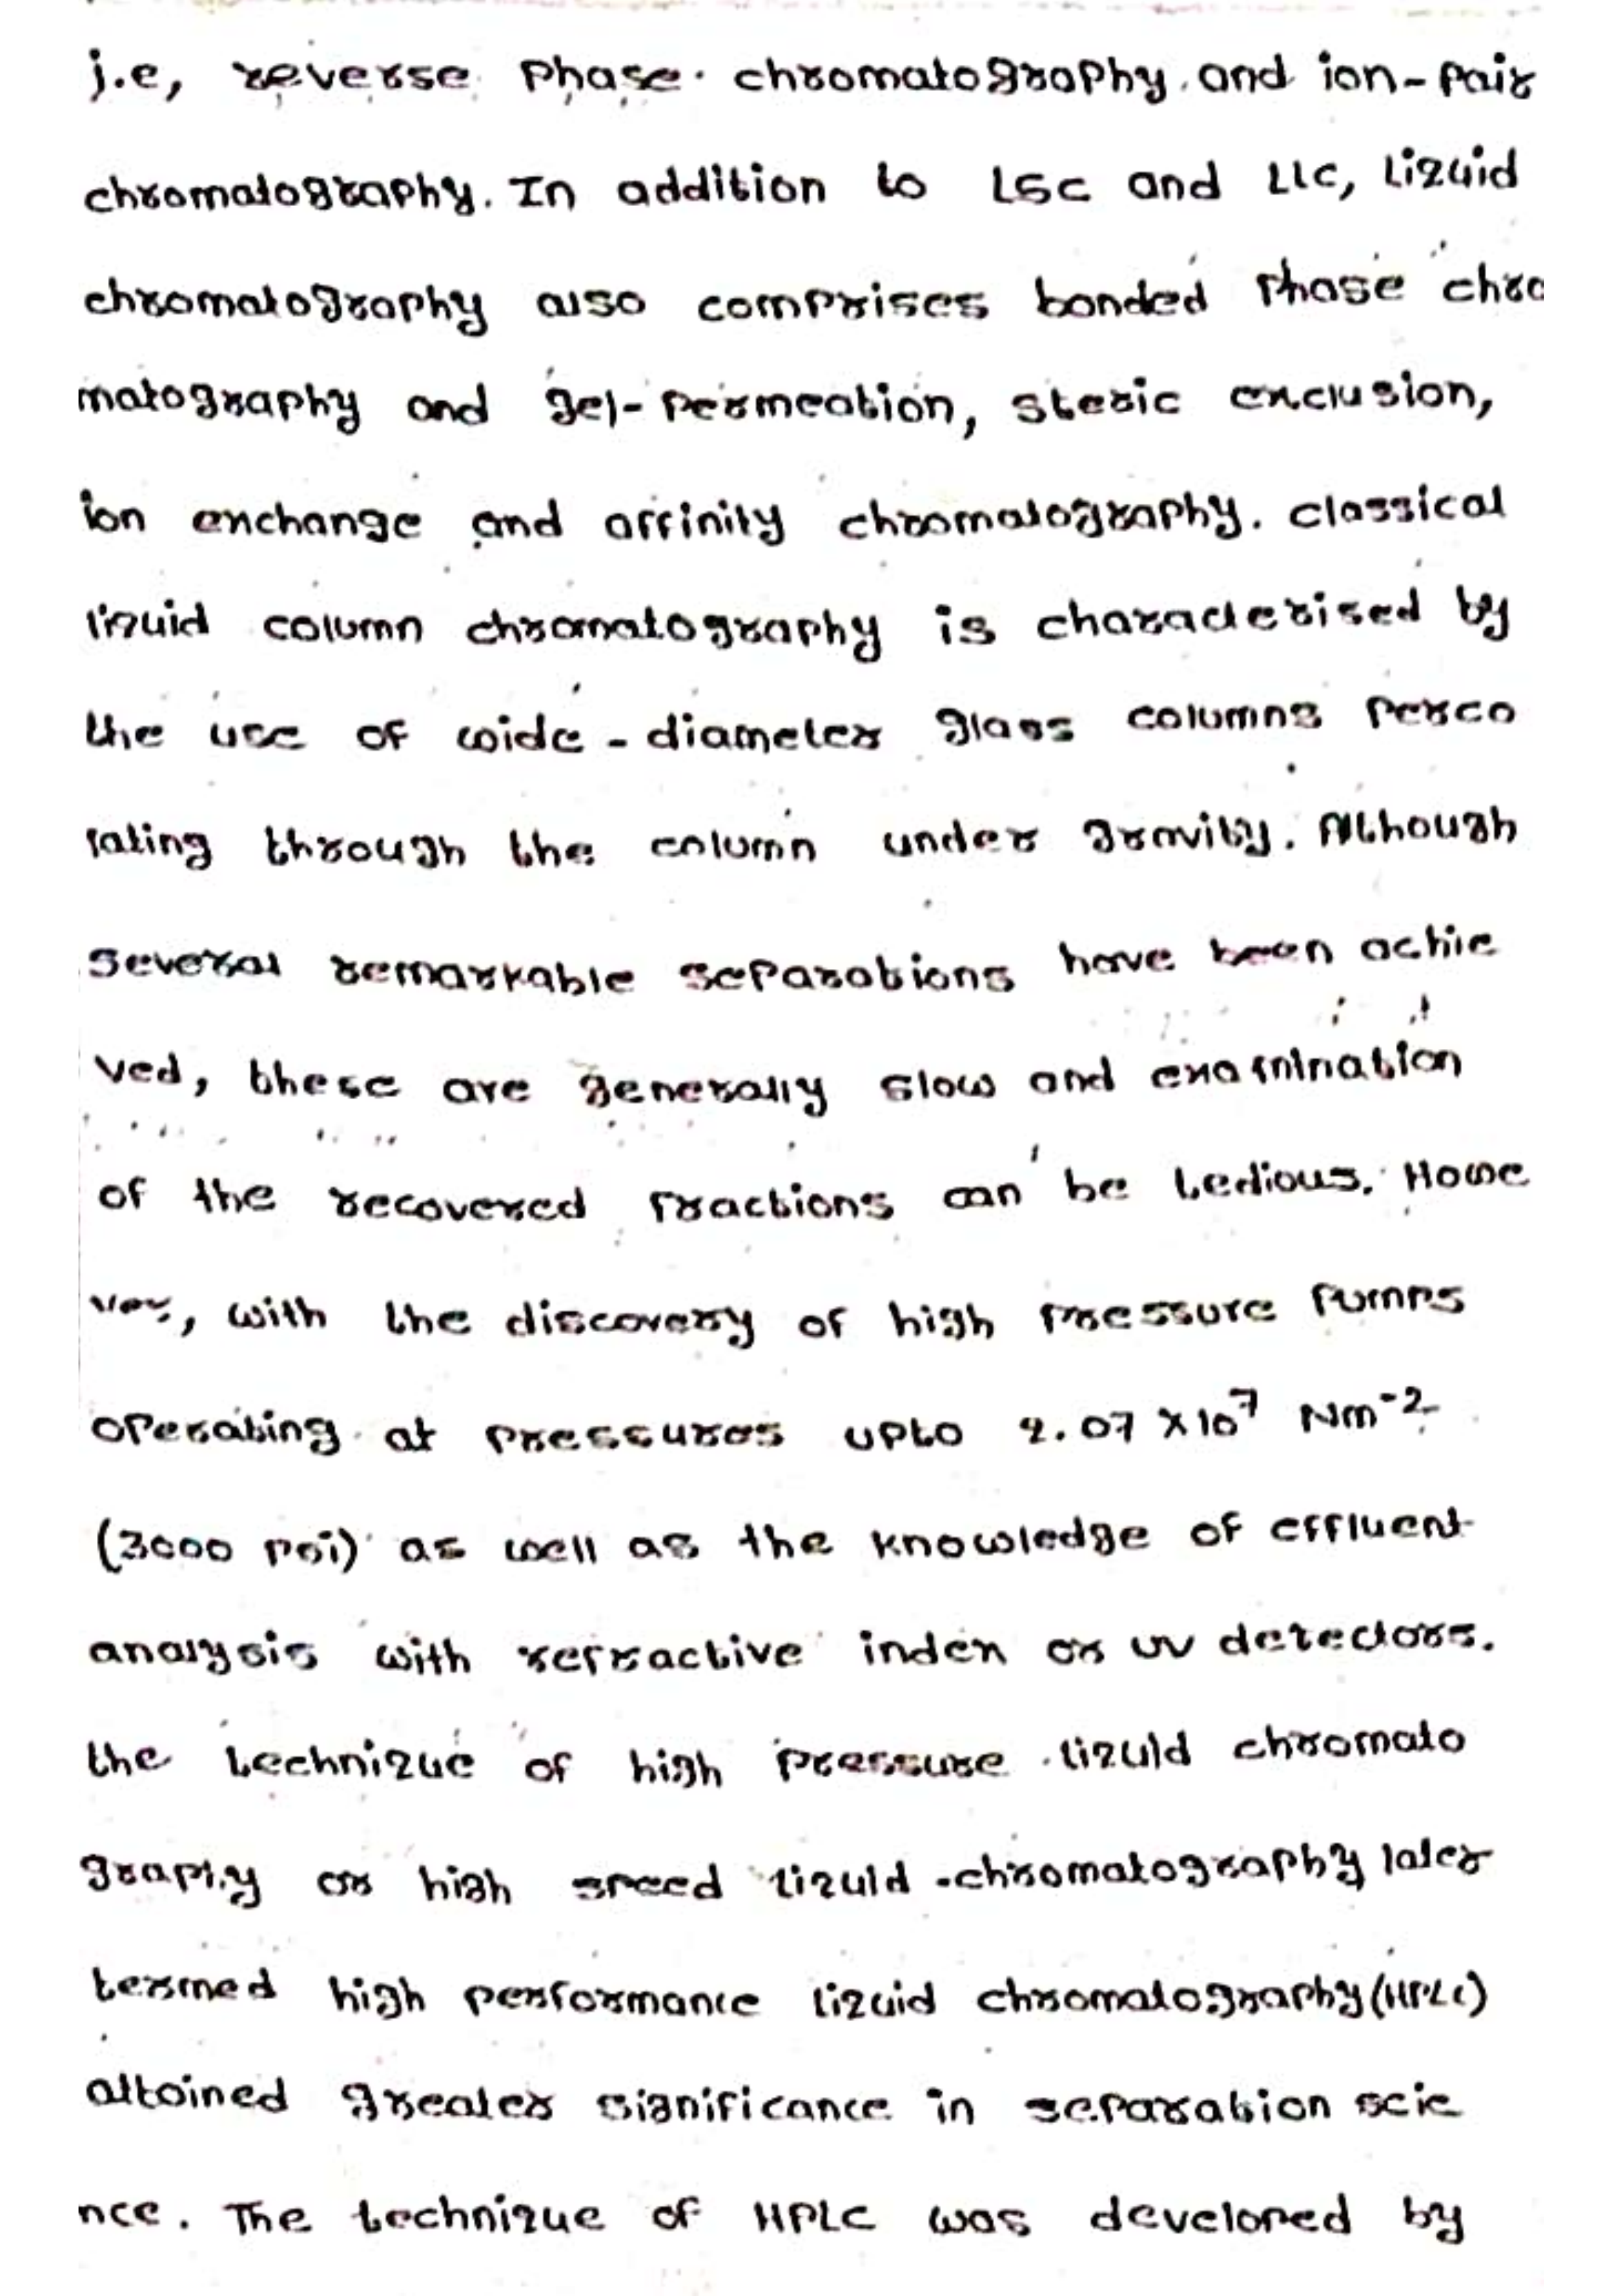 i.e, reverse phase chromatography and ion-pair
chromatography. In addition to LSC and LLC, liquid
chromatography also comprises bonded phase chro
matography and gel-permeation, steric exclusion,
ion exchange and affinity chromatography. classical
liquid column chromatography is characterised by
the use of wide-diameter glass columns perco
lating through the column under gravity. Although
several remarkable separations have been achie
ved, these are generally slow and examination
of the recovered fractions can be tedious. Howe
ver, with the discovery of high pressure pumps
operating at pressures upto 2.07 x 10⁷ Nm⁻²
(3000 psi) as well as the knowledge of effluent
analysis with refractive index or UV detectors.
the technique of high pressure liquid chromato
graphy or high speed liquid-chromatography later
termed high performance liquid chromatography (HPLC)
attained greater significance in separation scie
nce. The technique of HPLC was developed by